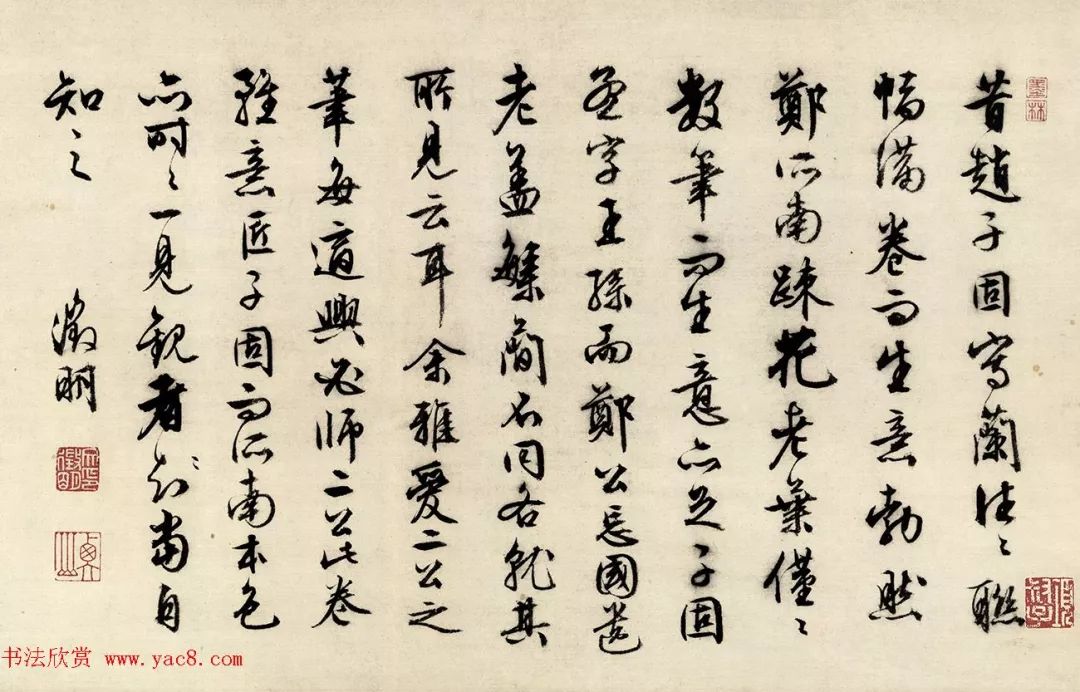 昔趙子固寫蘭往〻聯
幅滿卷而生意勃然
鄭所南疎花老葉僅〻
數筆而生意亦足子固
王孫而鄭公忘國遺
老蓋繁簡不同各就其
所見云耳余雅愛二公之
筆每適興必師二公此卷
雖意匠子固而所南本色
亦時〻一見觀者當自
知之 徵明
墨林
书法欣赏 www.yac8.com